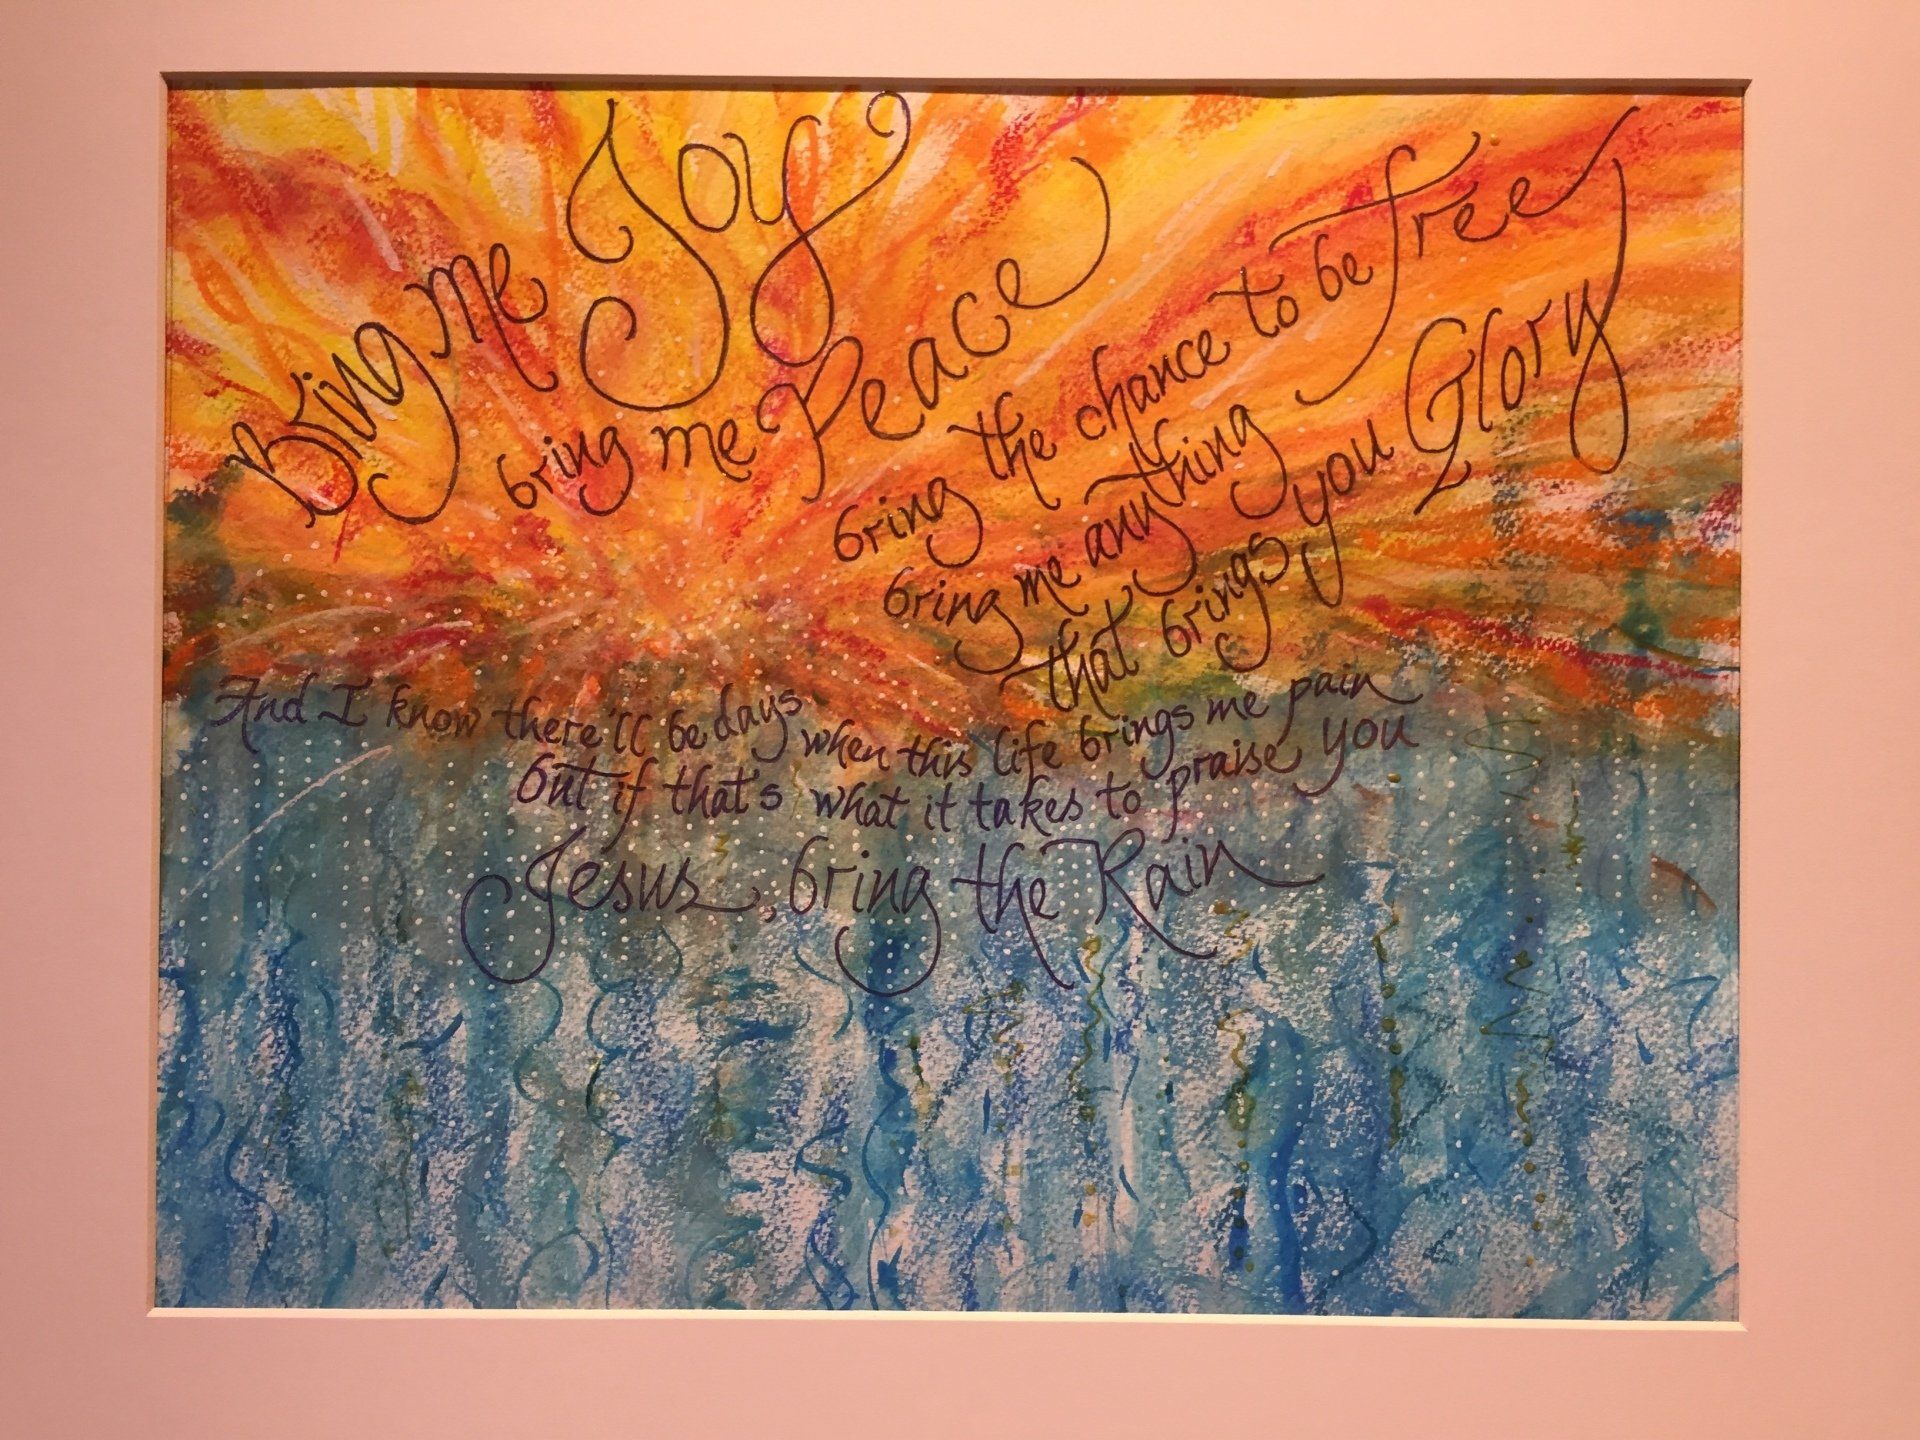 Bring me Joy
bring me Peace
bring the chance to be free
bring me anything
that brings you Glory
And I know there'll be days when this life brings me pain
but if that's what it takes to praise you
Jesus, bring the Rain